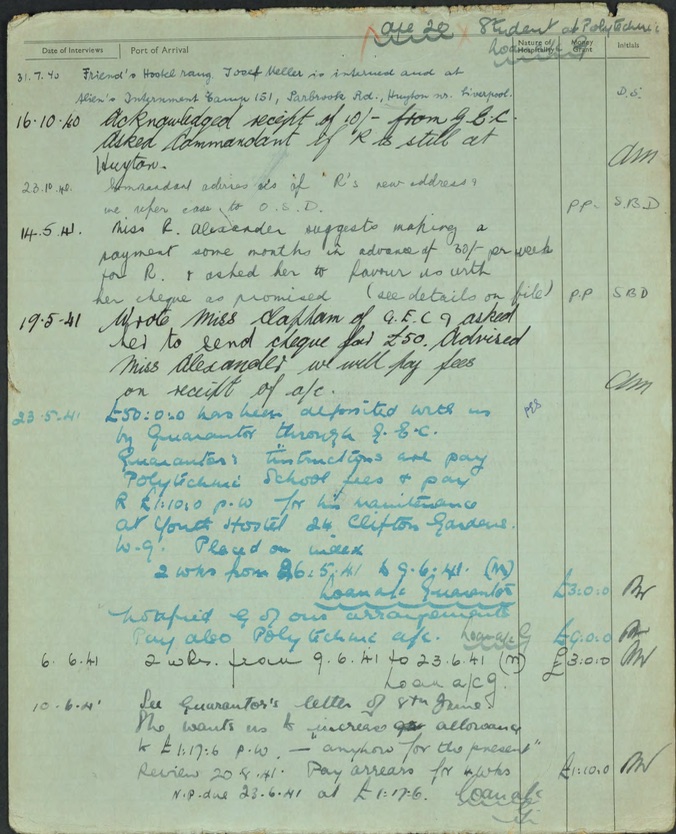 age 20 x Student at Polytechnic
Loan a/c G
Date of Interviews Port of Arrival Nature of Hospitality Money Grant Initials
31.7.40 Friend's Hostel rang. Josef Meller is interned and at
Alien's Internment Camp 151, Parbrook Rd., Huyton nr. Liverpool. D.S.
16.10.40 Acknowledged receipt of 10/- from G.E.C.
Asked Commandant if R is still at
Huyton.
23.10.40. Commandant advises us of R's new address &
we refer case to O.S.D. P.P. S.B.D
14.5.41. Miss R. Alexander suggests making a
payment some months in advance of 30/- per week
for R. & asked her to favour us with
her cheque as promised (see details on file) P.P S B D
19.5.41 Wrote Miss Clapham of G.E.C & asked
her to send cheque for £50. Advised
Miss Alexander we will pay fees
on receipt of a/c.
23.5.41 £50:0:0 has been deposited with us
by Guarantor through G.E.C.
Guarantor's instructions are pay
Polytechnic School fees & pay
R £1:10:0 p.w for his maintenance
at Youth Hostel 24 Clifton Gardens.
W.9. Placed on index
2 wks from 26.5.41 to 9.6.41. (M)
Loan a/c Guarantor £3:0:0
Notified G of our arrangements
Pay also Polytechnic a/c. Loan a/c G
6.6.41 2 wks. from 9.6.41 to 23.6.41 (M) £3:0:0
Loan a/c G.
10.6.41 See Guarantor's letter of 8th June.
She wants us to "increase allowance
to £1:17:6 p.w. — anyhow for the present"
Review 20.8.41. Pay arrears for 4 wks £1:10:0
N.P. due 23.6.41 at £1:17:6. Loan a/c